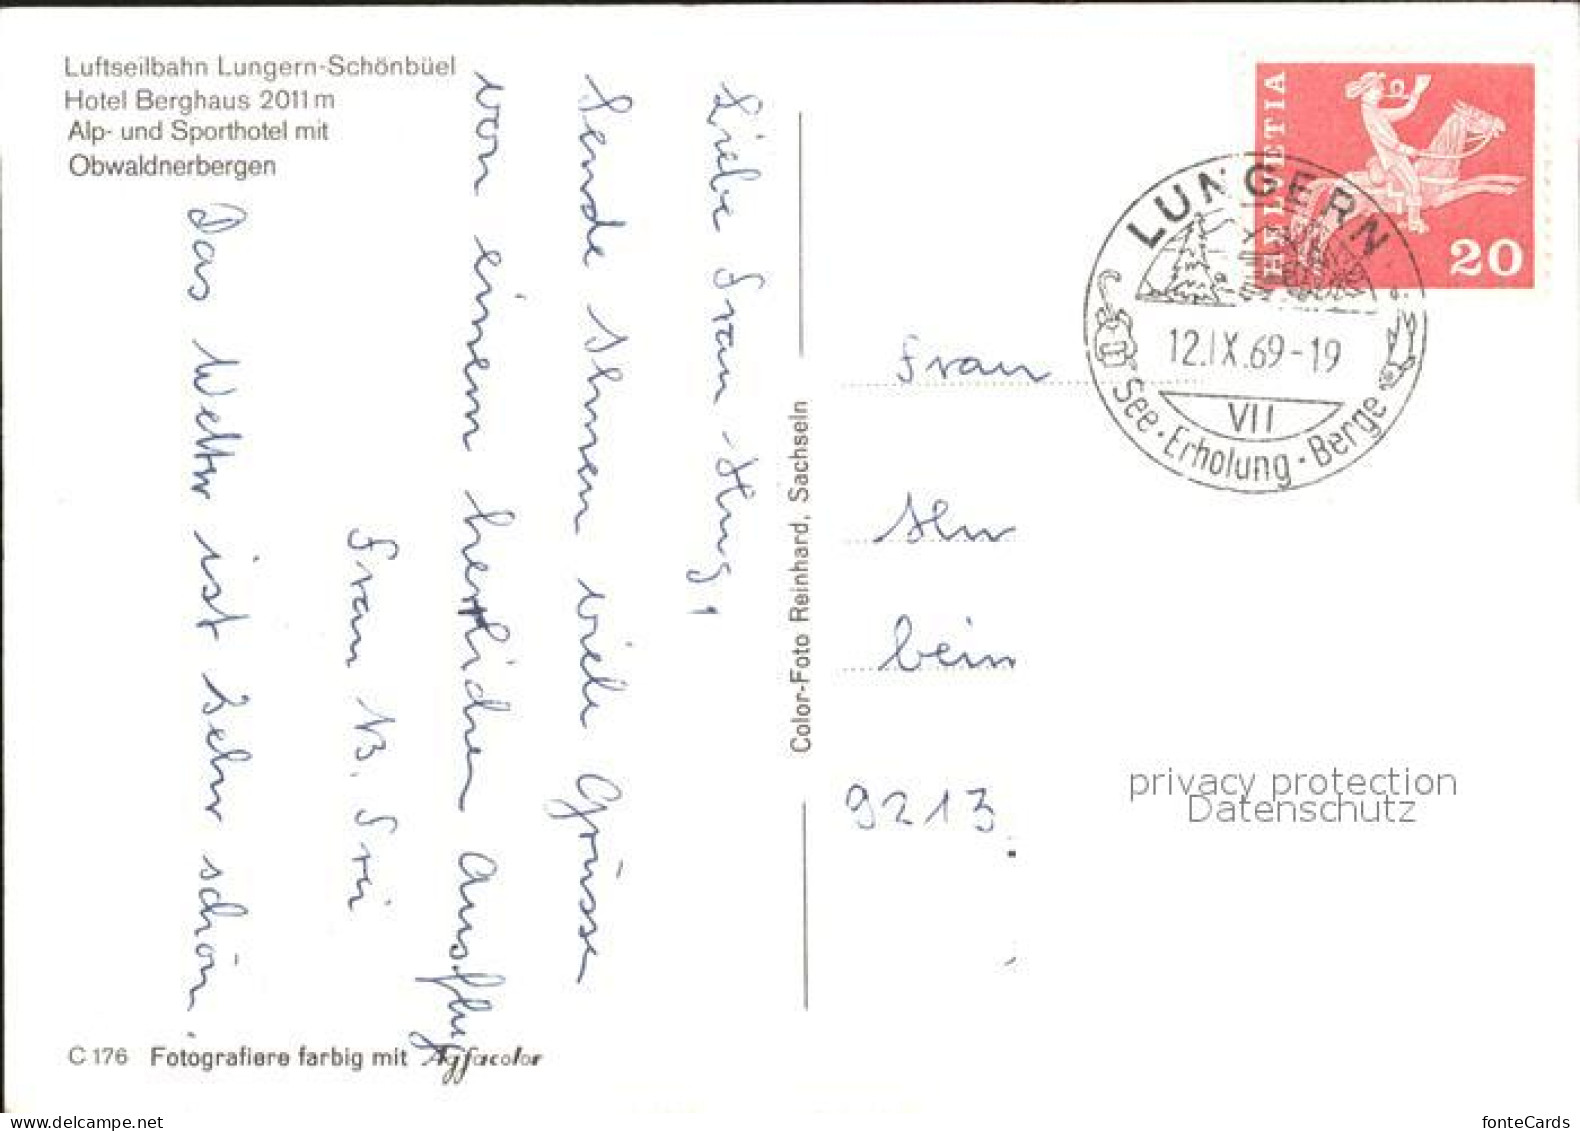 Luftseilbahn Lungern-Schönbüel
Hotel Berghaus 2011 m
Alp- und Sporthotel mit
Obwaldnerbergen
Liebe Frau Hug,
Sende Ihnen viele Grüsse
von einem herlichen Ausflug
Frau B. Frei
Das Wetter ist sehr schön.
C 176 Fotografiere farbig mit Agfacolor
Color-Foto Reinhard, Sachseln
HELVETIA
20
LUNGERN
12.IX.69-19
VII
See · Erholung · Berge
Frau
bein
9213
privacy protection
Datenschutz
www.delcampe.net
fonteCards